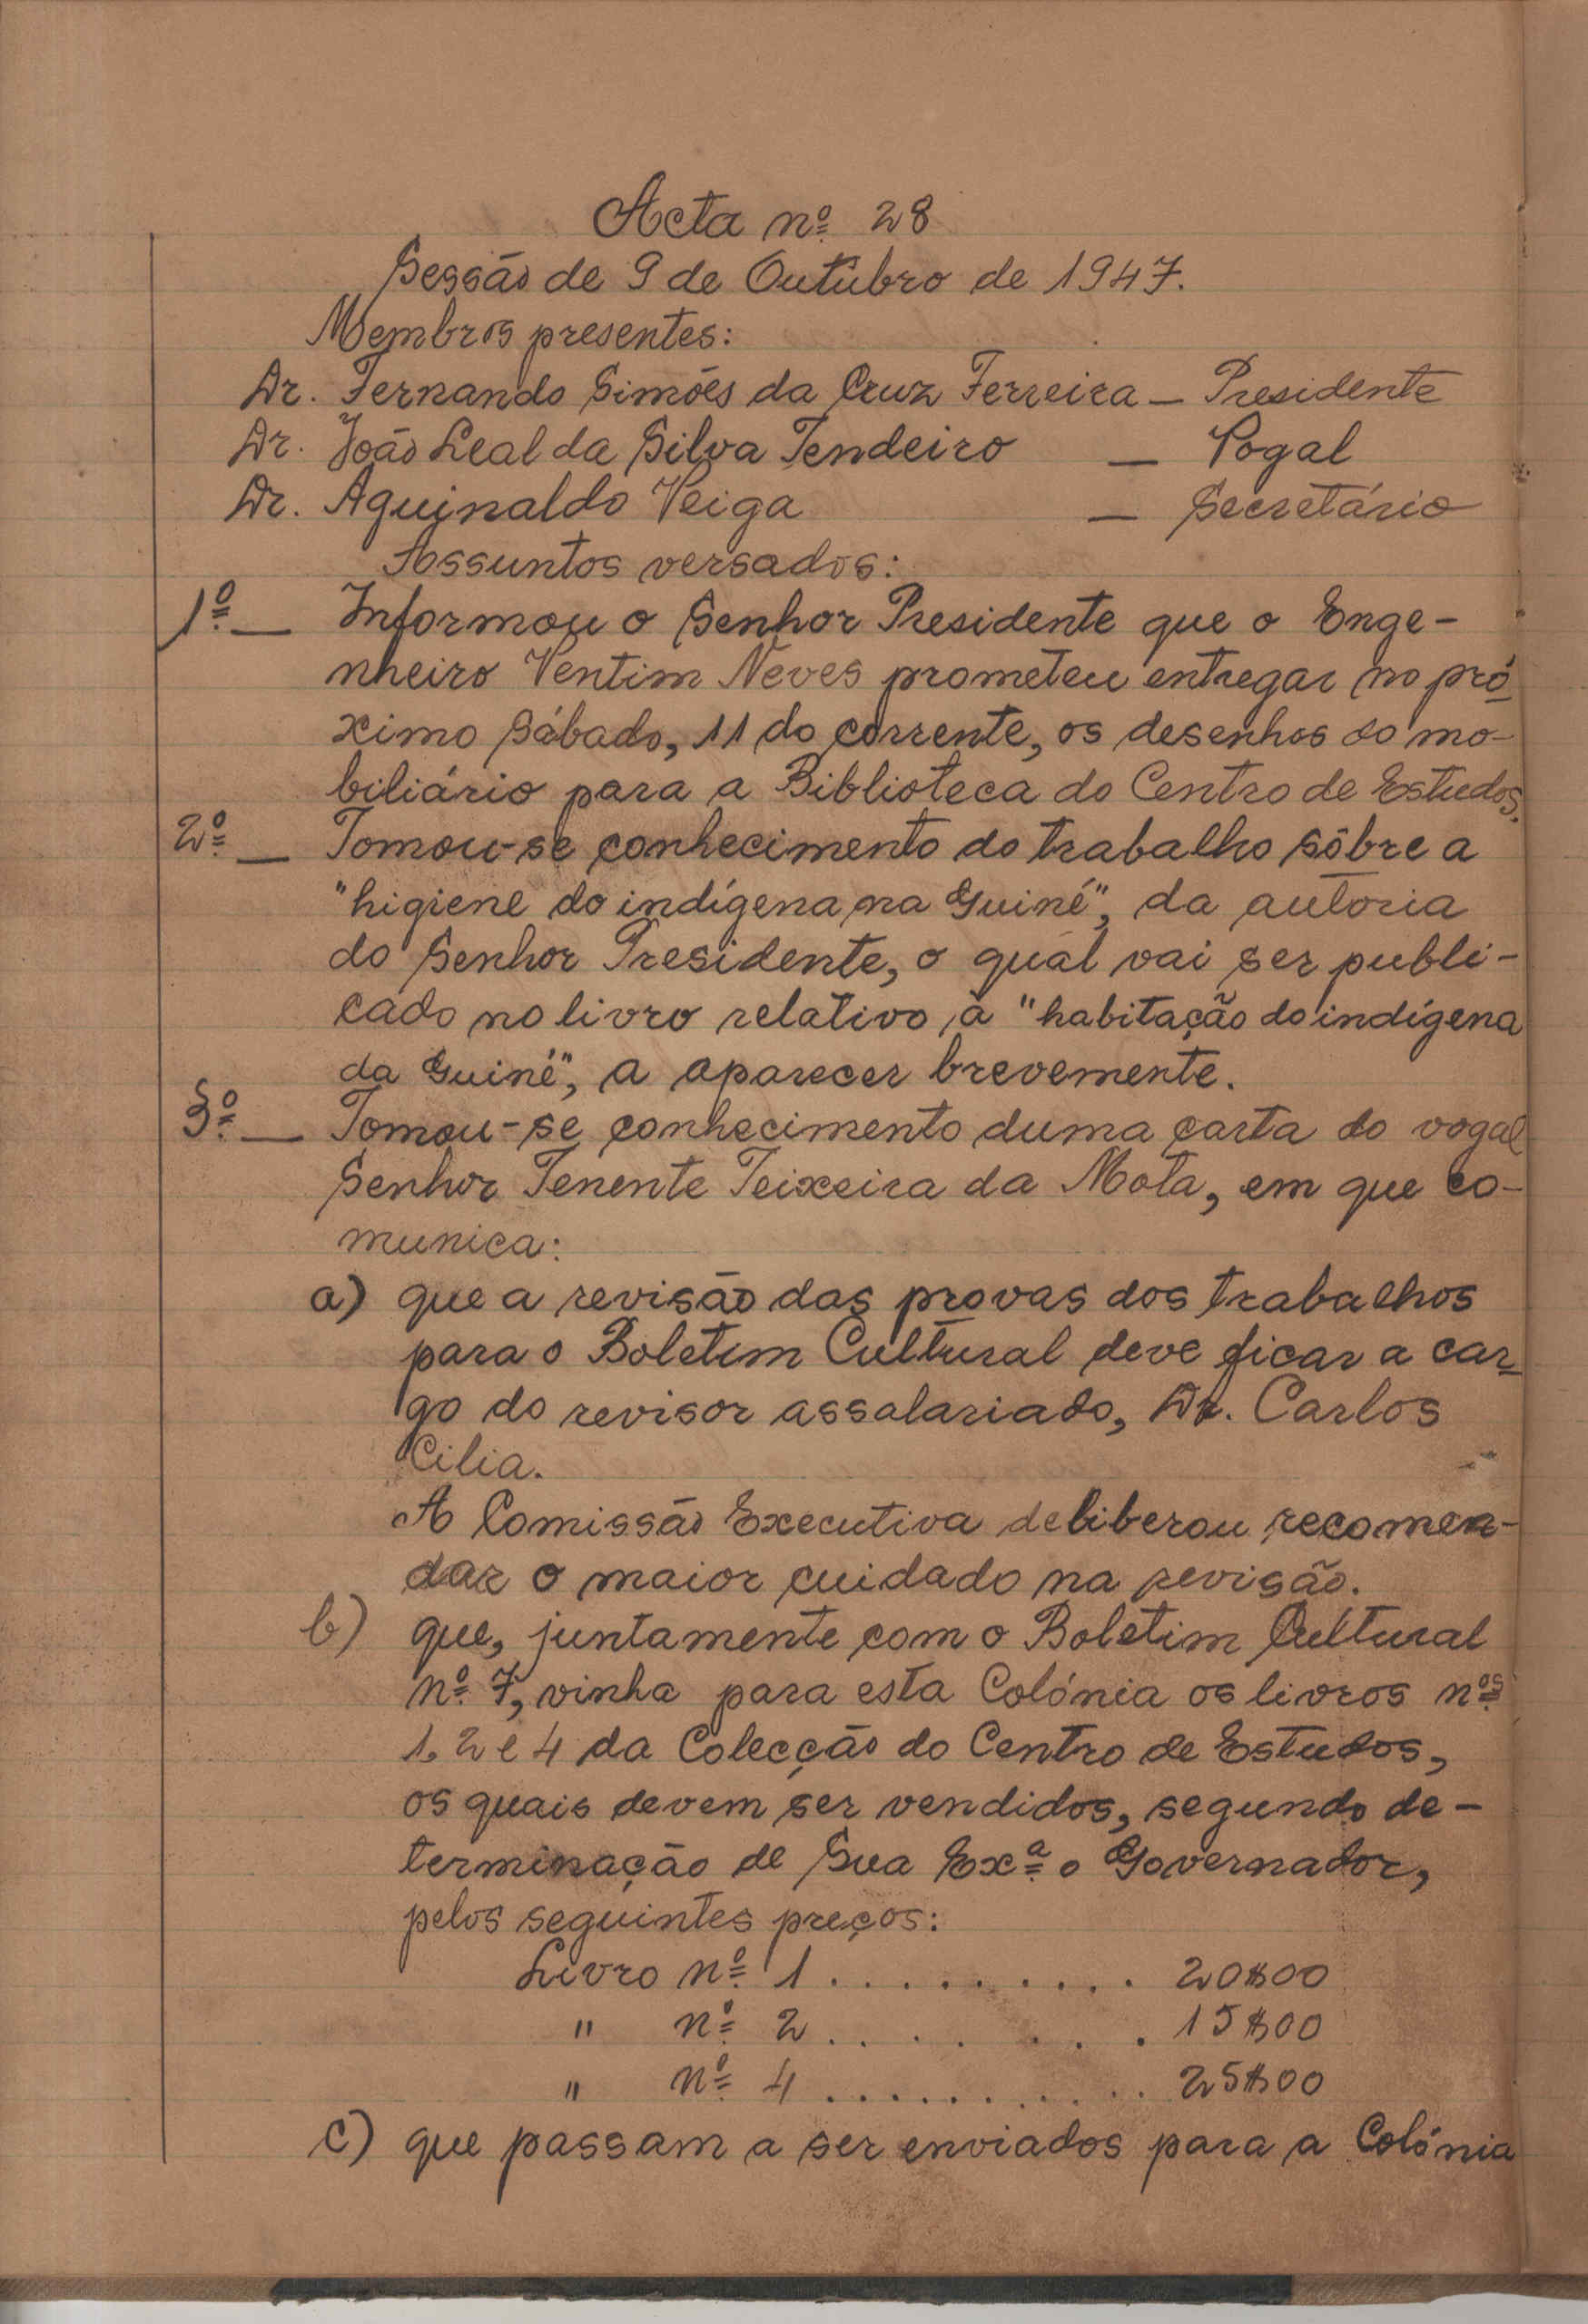 Acta nº 28
Sessão de 9 de Outubro de 1947.
Membros presentes:
Dr. Fernando Simões da Cruz Ferreira — Presidente
Dr. João Leal da Silva Tendeiro — Vogal
Dr. Aguinaldo Veiga — Secretário
Assuntos versados:
1º — Informou o Senhor Presidente que o Enge-
nheiro Ventim Neves prometeu entregar no pró-
ximo sábado, 11 do corrente, os desenhos do mo-
biliário para a Biblioteca do Centro de Estudos.
2º — Tomou-se conhecimento do trabalho sôbre a
"higiene do indígena na Guiné", da autoria
do Senhor Presidente, o qual vai ser publi-
cado no livro relativo à "habitação do indígena
da Guiné", a aparecer brevemente.
3º — Tomou-se conhecimento duma carta do vogal
Senhor Tenente Teixeira da Mota, em que co-
munica:
a) que a revisão das provas dos trabalhos
para o Boletim Cultural deve ficar a car-
go do revisor assalariado, Dr. Carlos
Cilia.
A Comissão Executiva deliberou recomen-
dar o maior cuidado na revisão.
b) que, juntamente com o Boletim Cultural
nº 7, vinha para esta Colónia os livros nºs
1, 2 e 4 da Colecção do Centro de Estudos,
os quais devem ser vendidos, segundo de-
terminação de Sua Exª o Governador,
pelos seguintes preços:
Livro nº 1 . . . . . . . . . . 20$00
" nº 2 . . . . . . . 15$00
" nº 4 . . . . . . . . . . . 25$00
c) que passam a ser enviados para a Colónia